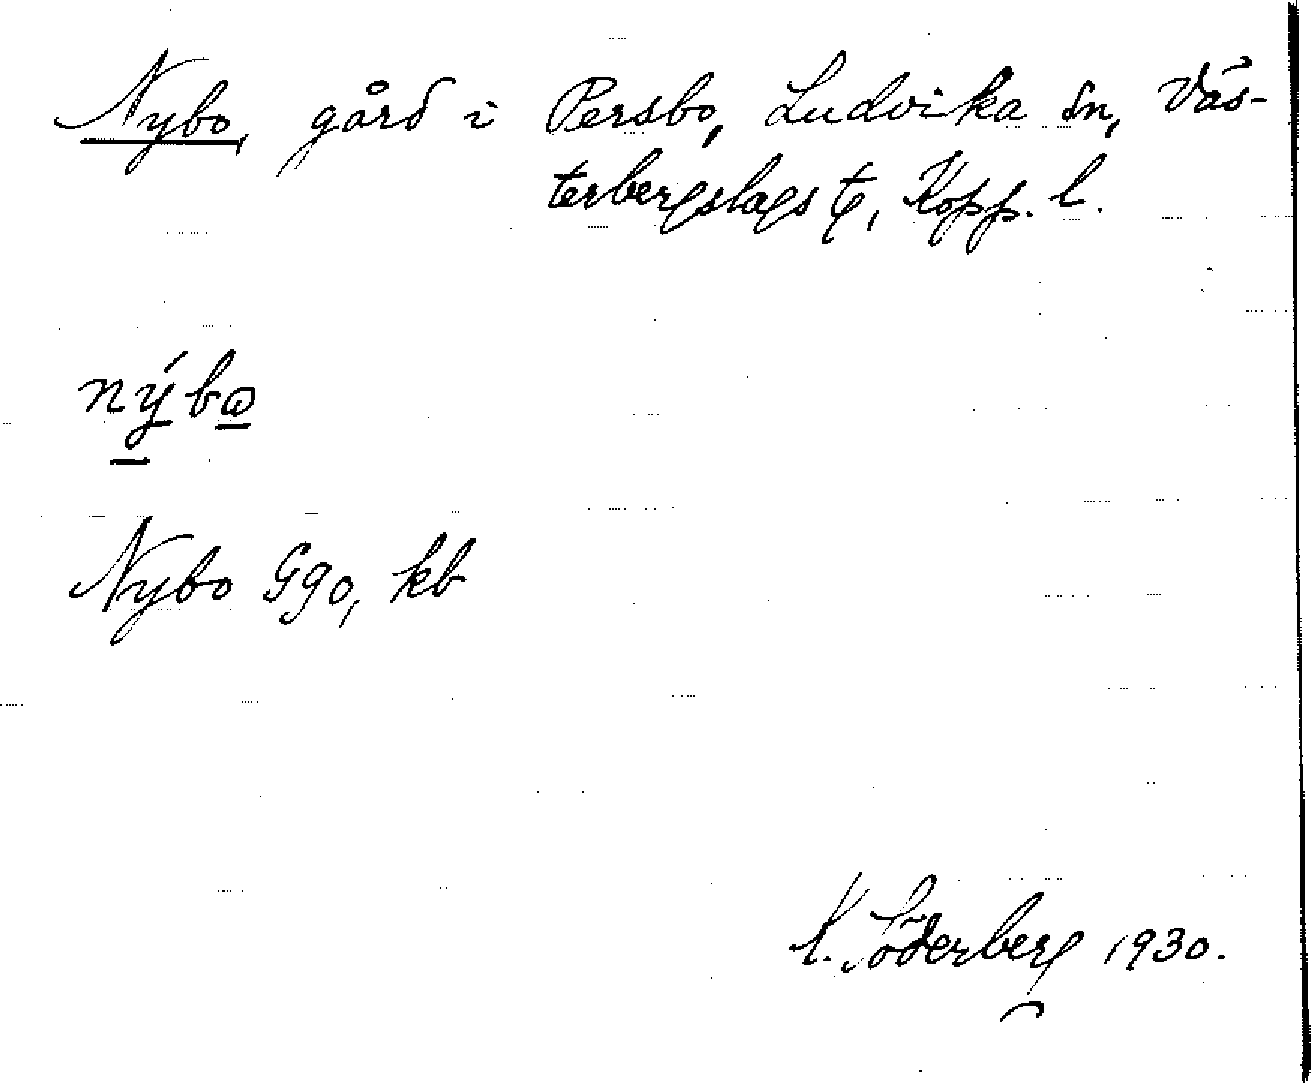 Nybo, gård i Persbo, Ludvika sn, Väs-
terbergslags tg, Kopp. l.
nýbω
Nybo Ggo, kb
K. Söderberg 1930.